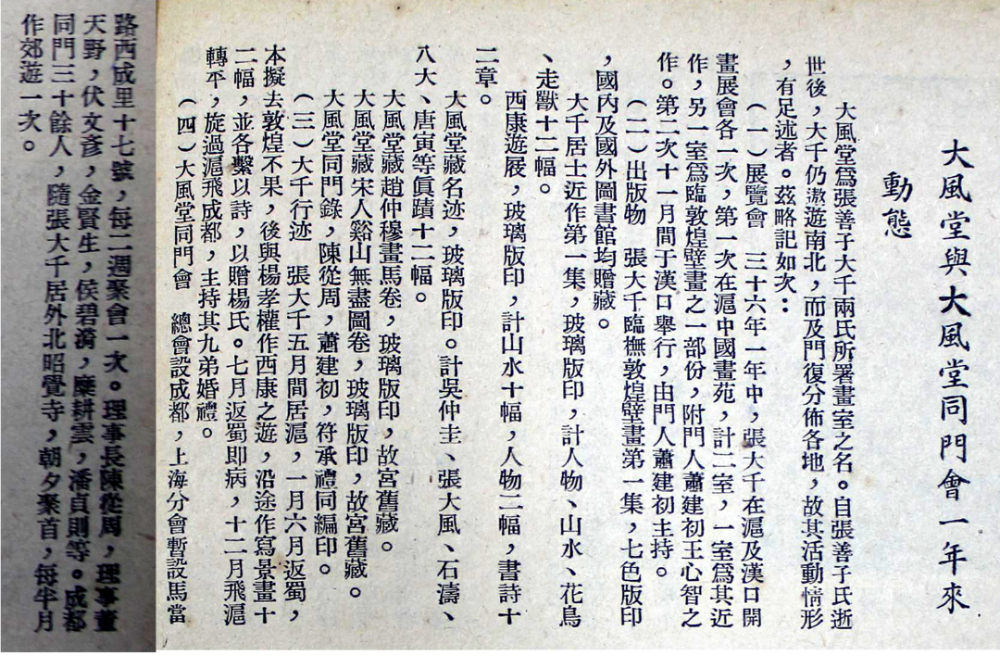 大風堂與大風堂同門會一年來
動態
大風堂爲張善子大千兩氏所署畫室之名。自張善子氏逝
世後，大千仍遨遊南北，而及門復分佈各地，故其活動情形
，有足述者。茲略記如次：
（一）展覽會　三十六年一年中，張大千在滬及漢口開
畫展會各一次，第一次在滬中國畫苑，計二室，一室爲其近
作，另一室爲臨敦煌壁畫之一部份，附門人蕭建初王心智之
作。第二次十一月間于漢口舉行，由門人蕭建初主持。
（二）出版物　張大千臨撫敦煌壁畫第一集，七色版印
，國內及國外圖書館均贈藏。
大千居士近作第一集，玻璃版印，計人物、山水、花鳥
、走獸十二幅。
西康遊屐，玻璃版印，計山水十幅，人物二幅，書詩十
二章。
大風堂藏名迹，玻璃版印。計吳仲圭、張大風、石濤、
八大、唐寅等眞蹟十二幅。
大風堂藏趙仲穆畫馬卷，玻璃版印，故宮舊藏。
大風堂藏宋人谿山無盡圖卷，玻璃版印，故宮舊藏。
大風堂同門錄，陳從周，蕭建初，符承禮同編印。
（三）大千行迹　張大千五月間居滬，一月六月返蜀，
本擬去敦煌不果，後與楊孝權作西康之遊，沿途作寫景畫十
二幅，並各繫以詩，以贈楊氏。七月返蜀即病，十二月飛滬
轉平，旋過滬飛成都，主持其九弟婚禮。
（四）大風堂同門會　總會設成都，上海分會暫設馬當
路西成里十七號，每二週聚會一次。理事長陳從周，理事董
天野，伏文彥，金賢生，侯碧漪，糜耕雲，潘貞則等。成都
同門三十餘人，隨張大千居外北昭覺寺，朝夕聚首，每半月
作郊遊一次。